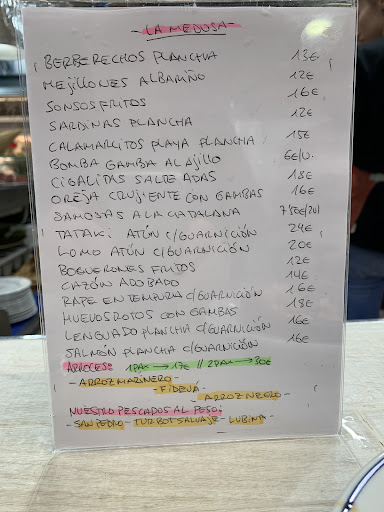 - LA MEDUSA -
BERBERECHOS PLANCHA 13€
MEJILLONES ALBARIÑO 12€
SONSOS FRITOS 16€
SARDINAS PLANCHA 12€
CALAMARCITOS PLAYA PLANCHA 15€
BOMBA GAMBA AL AJILLO 6€/U.
CIGALITAS SALTEADAS 18€
OREJA CRUJIENTE CON GAMBAS 16€
SAMOSAS A LA CATALANA 7'50€/2U
TATAKI ATÚN C/GUARNICIÓN 24€
LOMO ATÚN C/GUARNICIÓN 20€
BOQUERONES FRITOS 12€
CAZÓN ADOBADO 14€
RAPE EN TEMPURA C/GUARNICIÓN 16€
HUEVOS ROTOS CON GAMBAS 18€
LENGUADO PLANCHA C/GUARNICIÓN 16€
SALMÓN PLANCHA C/GUARNICIÓN 16€
ARROCES: 1PAX → 17€ // 2PAX → 30€
- ARROZ MARINERO
- FIDEUÁ
- ARROZ NEGRO -
NUESTRO PESCADOS AL PESO:
- SAN PEDRO - TURBOT SALVAJE - LUBINA -